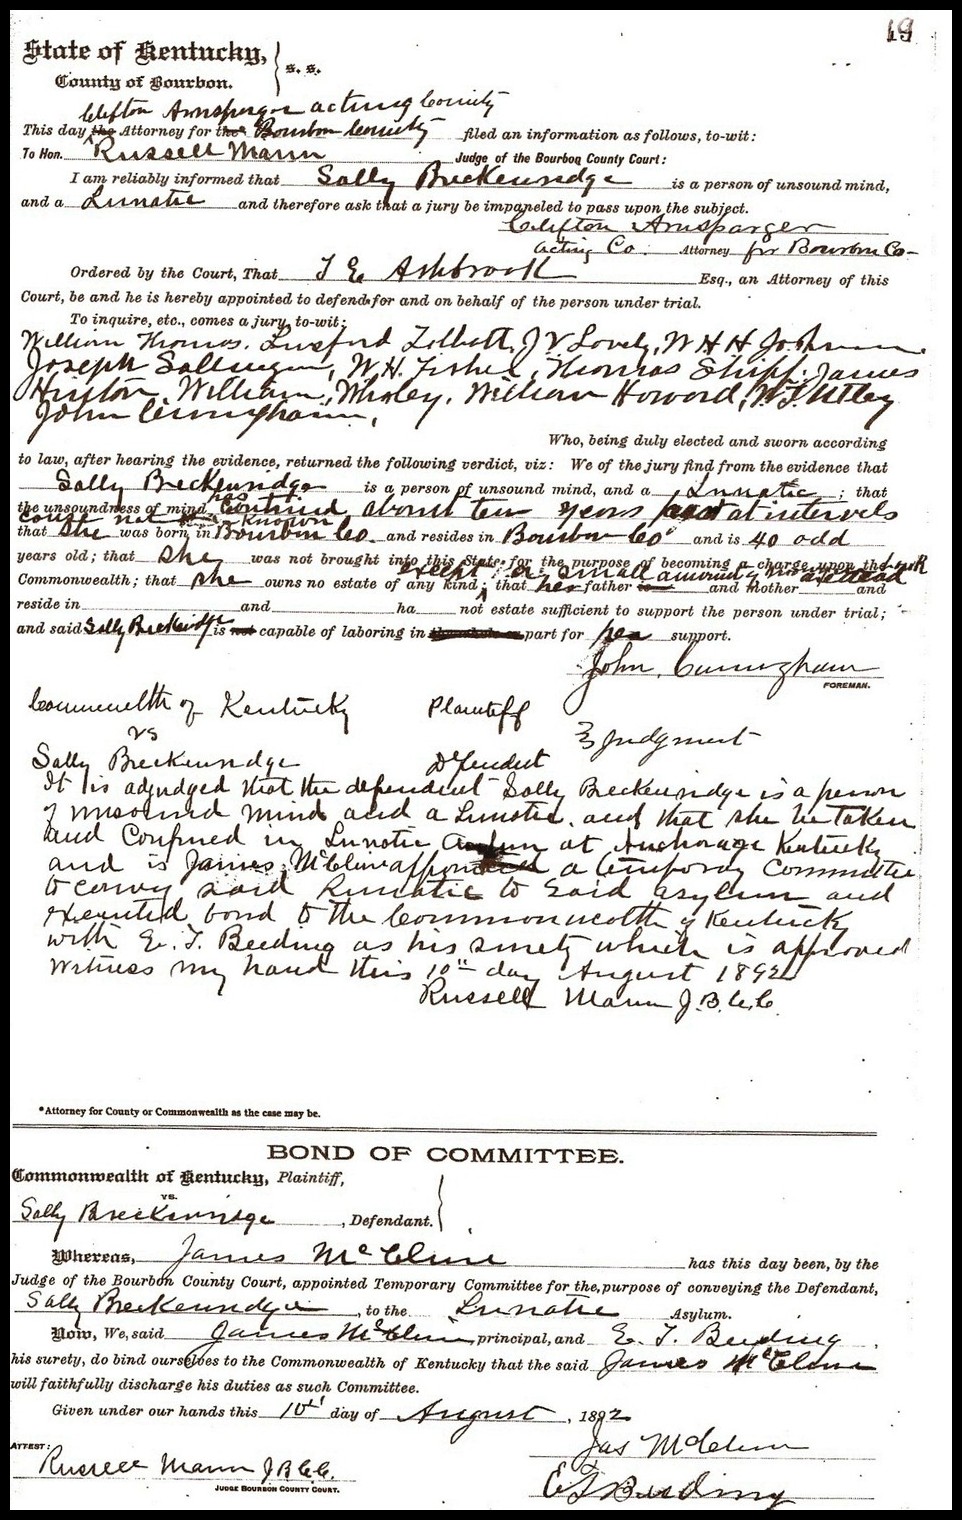 19
State of Kentucky,
County of Bourbon. s. s.
Clifton Arnsparger acting County
This day the Attorney for the* Bourbon County filed an information as follows, to-wit:
To Hon. Russell Mann Judge of the Bourbon County Court:
I am reliably informed that Sally Breckenridge is a person of unsound mind,
and a Lunatic and therefore ask that a jury be impaneled to pass upon the subject.
Clifton Arnsparger
acting Co. Attorney for Bourbon Co-
Ordered by the Court, That T E Ashbrook Esq., an Attorney of this
Court, be and he is hereby appointed to defend for and on behalf of the person under trial.
To inquire, etc., comes a jury, to-wit:
William Thomas. Lunsford Talbott, J V Lovely, W H H Johnson
Joseph W.H. Fisher, Thomas Shipp. James
Hinton, William, Whaley, William Howard, W.T. Utley
John Cuningham,
Who, being duly elected and sworn according
to law, after hearing the evidence, returned the following verdict, viz: We of the jury find from the evidence that
Sally Breckenridge is a person of unsound mind, and a Lunatic ; that
the unsoundness of mind has continued about ten years at intervals
could not known
that she was born in Bourbon Co. and resides in Bourbon Co and is 40 odd
years old; that she was not brought into this State for the purpose of becoming a charge upon the
except a small amount of
Commonwealth; that she owns no estate of any kind; that her father and mother are dead and
reside in and ha not estate sufficient to support the person under trial;
and said Sally Breckenridge is not capable of laboring in part for her support.
John, Cuningham
FOREMAN.
Commonwelth of Kentucky Plaintiff
vs
Judgment
Sally Breckenridge Defendent
It is adjudged that the dependent Sally Breckenridge is a person
of unsound mind and a Lunatic. and that she be taken
and Confined in Lunatic at Anchorage Kentucky
and is James McClure appointed a temporay Committee
to convey said Lunatic to said asylum and
executed bond to the Commonwealth of Kentucky
with E. T. Beeding as his surety which is approved
Witness my hand this 10th day August 1892
Russell Mann J.B.C.C.
*Attorney for County or Commonwealth as the case may be.
BOND OF COMMITTEE.
Commonwealth of Kentucky, Plaintiff,
vs.
Sally Breckenridge , Defendant.
Whereas, James McClure has this day been, by the
Judge of the Bourbon County Court, appointed Temporary Committee for the purpose of conveying the Defendant,
Sally Breckenridge , to the Lunatic Asylum.
Now, We, said James McClure principal, and E. T. Beeding ,
his surety, do bind ourselves to the Commonwealth of Kentucky that the said James McClure
will faithfully discharge his duties as such Committee.
Given under our hands this 10th day of August , 1892
Jas McClure
ATTEST:
Russell Mann J.B.C.C.
JUDGE BOURBON COUNTY COURT.
E T Beeding